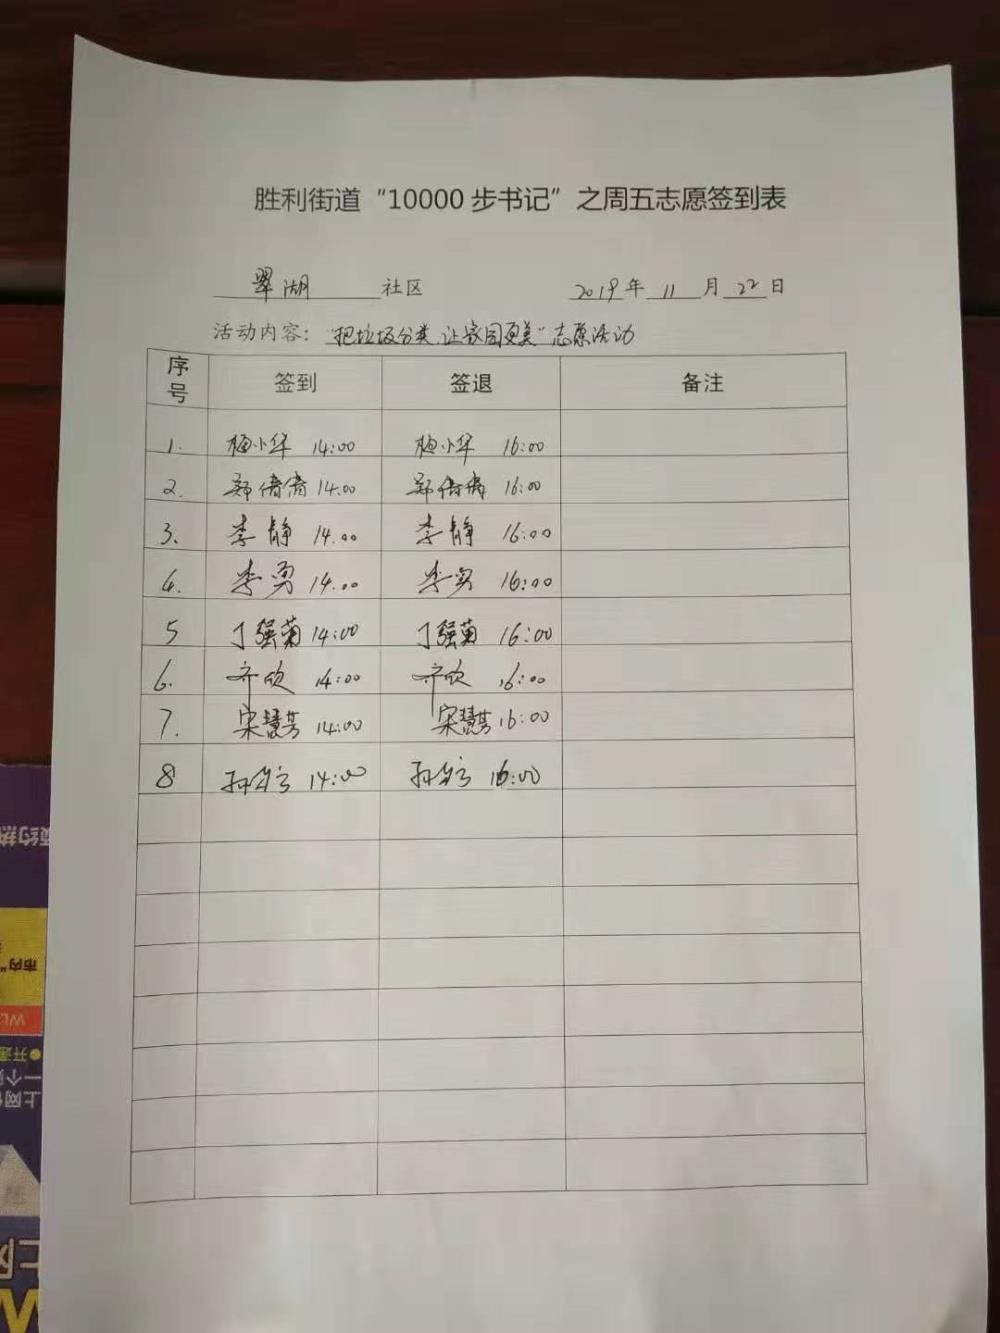 胜利街道“10000 步书记”之周五志愿签到表
翠湖 社区 2019 年 11 月 22 日
活动内容：“把垃圾分类 让家园更美”志愿活动
序号 签到 签退 备注
1. 梅小华 14:00 梅小华 16:00
2. 郑倩倩 14:00 郑倩倩 16:00
3. 李静 14:00 李静 16:00
4. 李勇 14:00 李勇 16:00
5 丁强菊 14:00 丁强菊 16:00
6. 齐欣 14:00 齐欣 16:00
7. 宋慧芳 14:00 宋慧芳 16:00
8 14:00 16:00
市内
上网